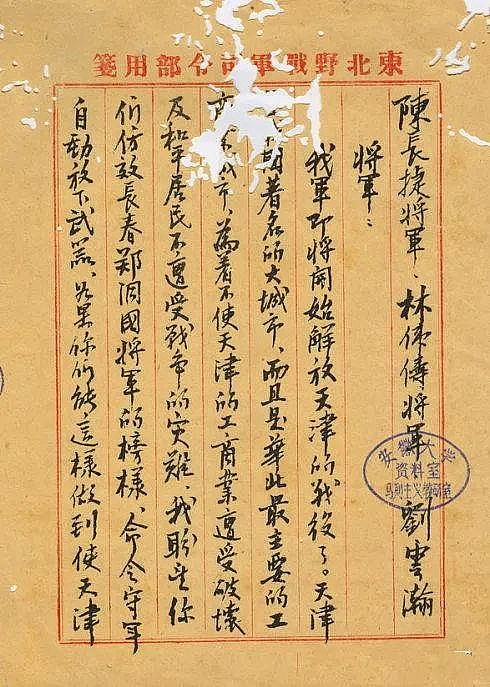 東北野戰軍司令部用箋
陳長捷將軍、林伟俦將軍、劉雲瀚
將軍：
我軍即將開始解放天津的戰役了。天津
期著名的大城市、而且是華北最主要的工
商業城市、為着不使天津的工商業遭受破壞
及和平居民不遭受战争的灾難、我盼望你
们仿效長春郑洞國將軍的榜樣、命令守軍
自動放下武器、如果你们能這樣做到使天津
资料室
马列主义教研室